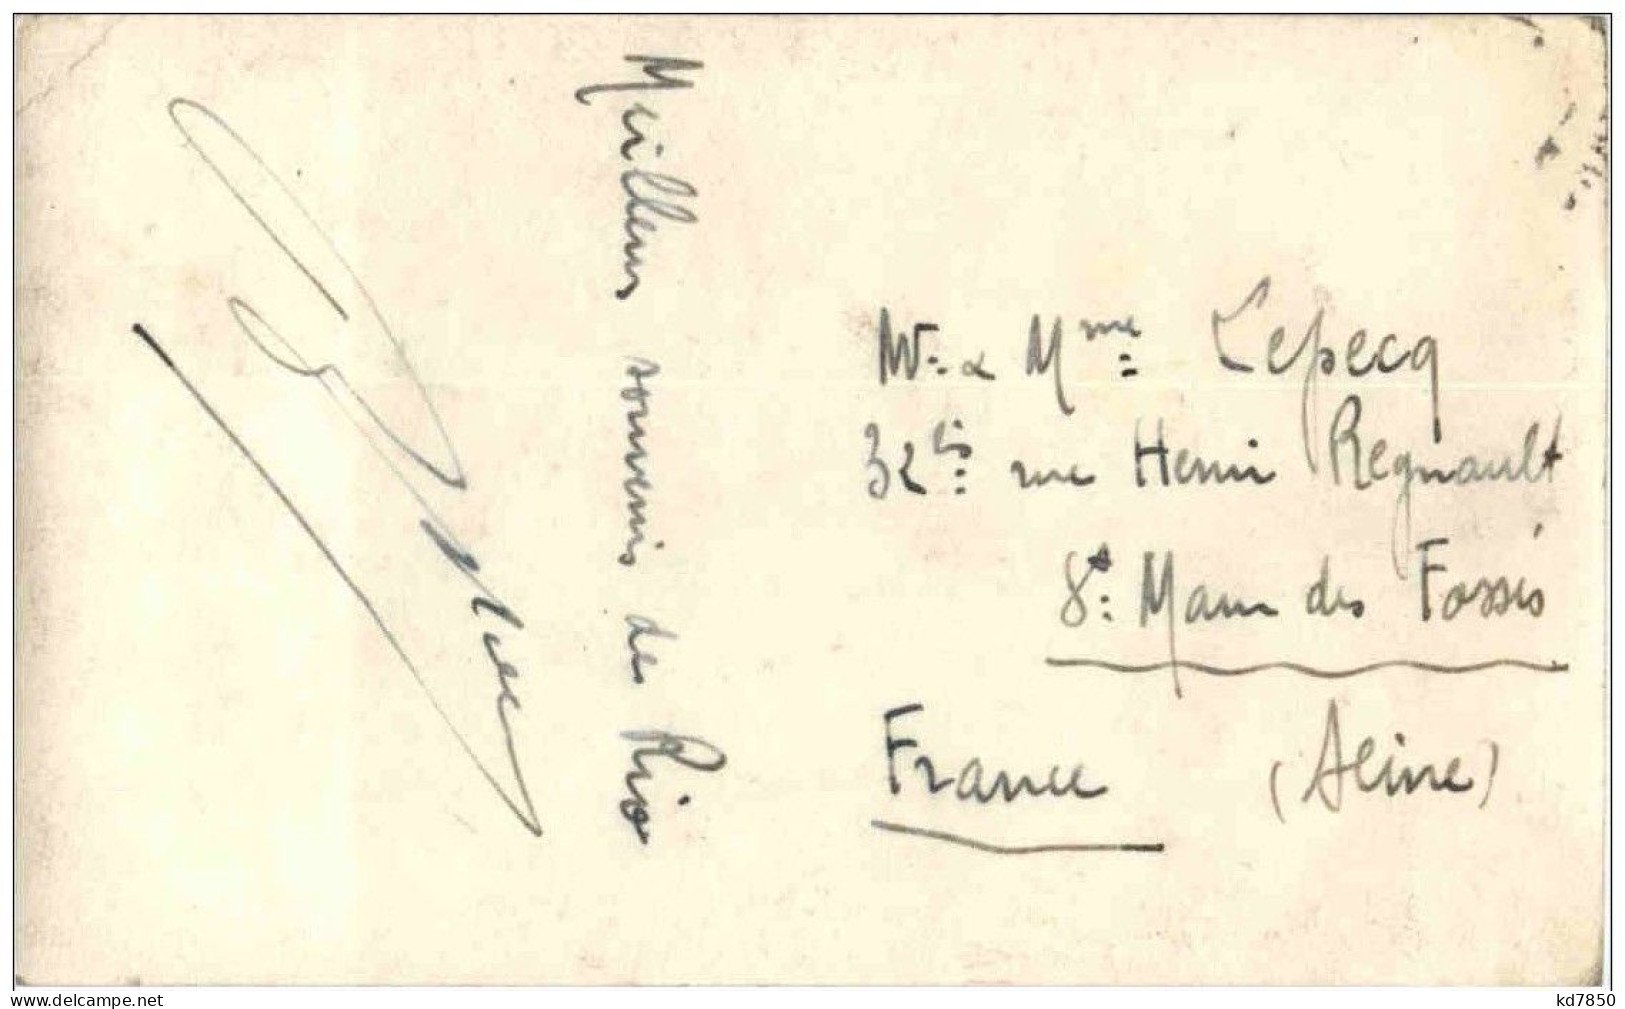 Meilleurs souvenirs de Rio
Mr. & Mme Lepecq
32bis rue Henri Regnault
St. Maur des Fossés
France (Seine)
www.delcampe.net
kd7850